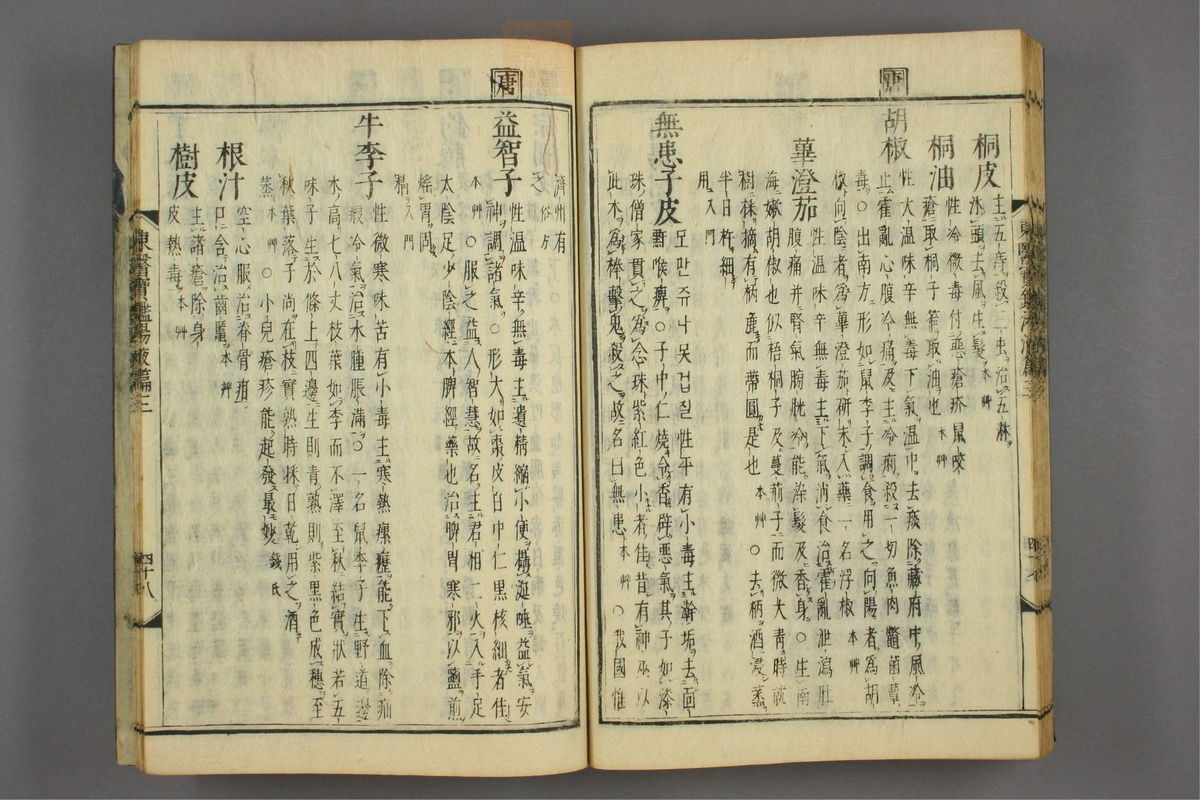 唐
桐皮
主五痔殺三虫治五淋
沐頭去風生髮 本艸
桐油
性冷微毒付惡瘡疥鼠咬
瘡取桐子笮取油也 本艸
胡椒
性大温味辛無毒下氣温中去痰除藏府中風冷
止霍亂心腹冷痛及主冷痢殺一切魚肉鱉菌蕈
毒○出南方形如鼠李子調食用之向陽者爲胡
椒向陰者爲蓽澄茄研末入藥一名浮椒 本艸
蓽澄茄
性温味辛無毒主下氣消食治霍亂泄瀉肚
腹痛并腎氣膀胱冷能染髮及香身○生南
海嫩胡椒也似梧桐子及蔓茄子而微大靑時就
樹採摘有柄麁而蔕圓是也 本艸 ○去柄酒浸蒸
半日杵細
用 入門
無患子皮
모관쥬나모겁질性平有小毒主澣垢去面
喉痺○子中仁燒令香辟惡氣其子如漆
珠僧家貫之爲念珠紫紅色小者佳昔有神巫以
此木爲棒擊鬼殺之故名曰無患 本艸 ○我國惟
唐
濟州有
之 俗方
益智子
性温味辛無毒主遺精縮小便攝涎唾益氣安
神調諸氣○形大如棗皮白中仁黑核細者佳
本艸 ○服之益人智慧故名主君相二火入手足
太陰足少陰經本脾經藥也治脾胃寒邪以鹽煎
煖胃固
精 入門
牛李子
性微寒味苦有小毒主寒熱瘰癧能下血除疝
瘕冷氣治水腫脹滿○一名鼠李子生野道邊
木高七八丈枝葉如李而不澤至秋結實狀若五
味子生於條上四邊生則青熟則紫黑色成穗至
秋葉落子尚在枝實熟時採日乾用之酒
蒸 本艸 ○小兒瘡疹能起發最妙 錢氏
根汁
空心服治脊骨疳
口含治齒䘌 本艸
樹皮
主諸瘡除身
皮熱毒 本艸
東醫寶鑑湯液篇三 四十八
東醫寶鑑湯液篇三